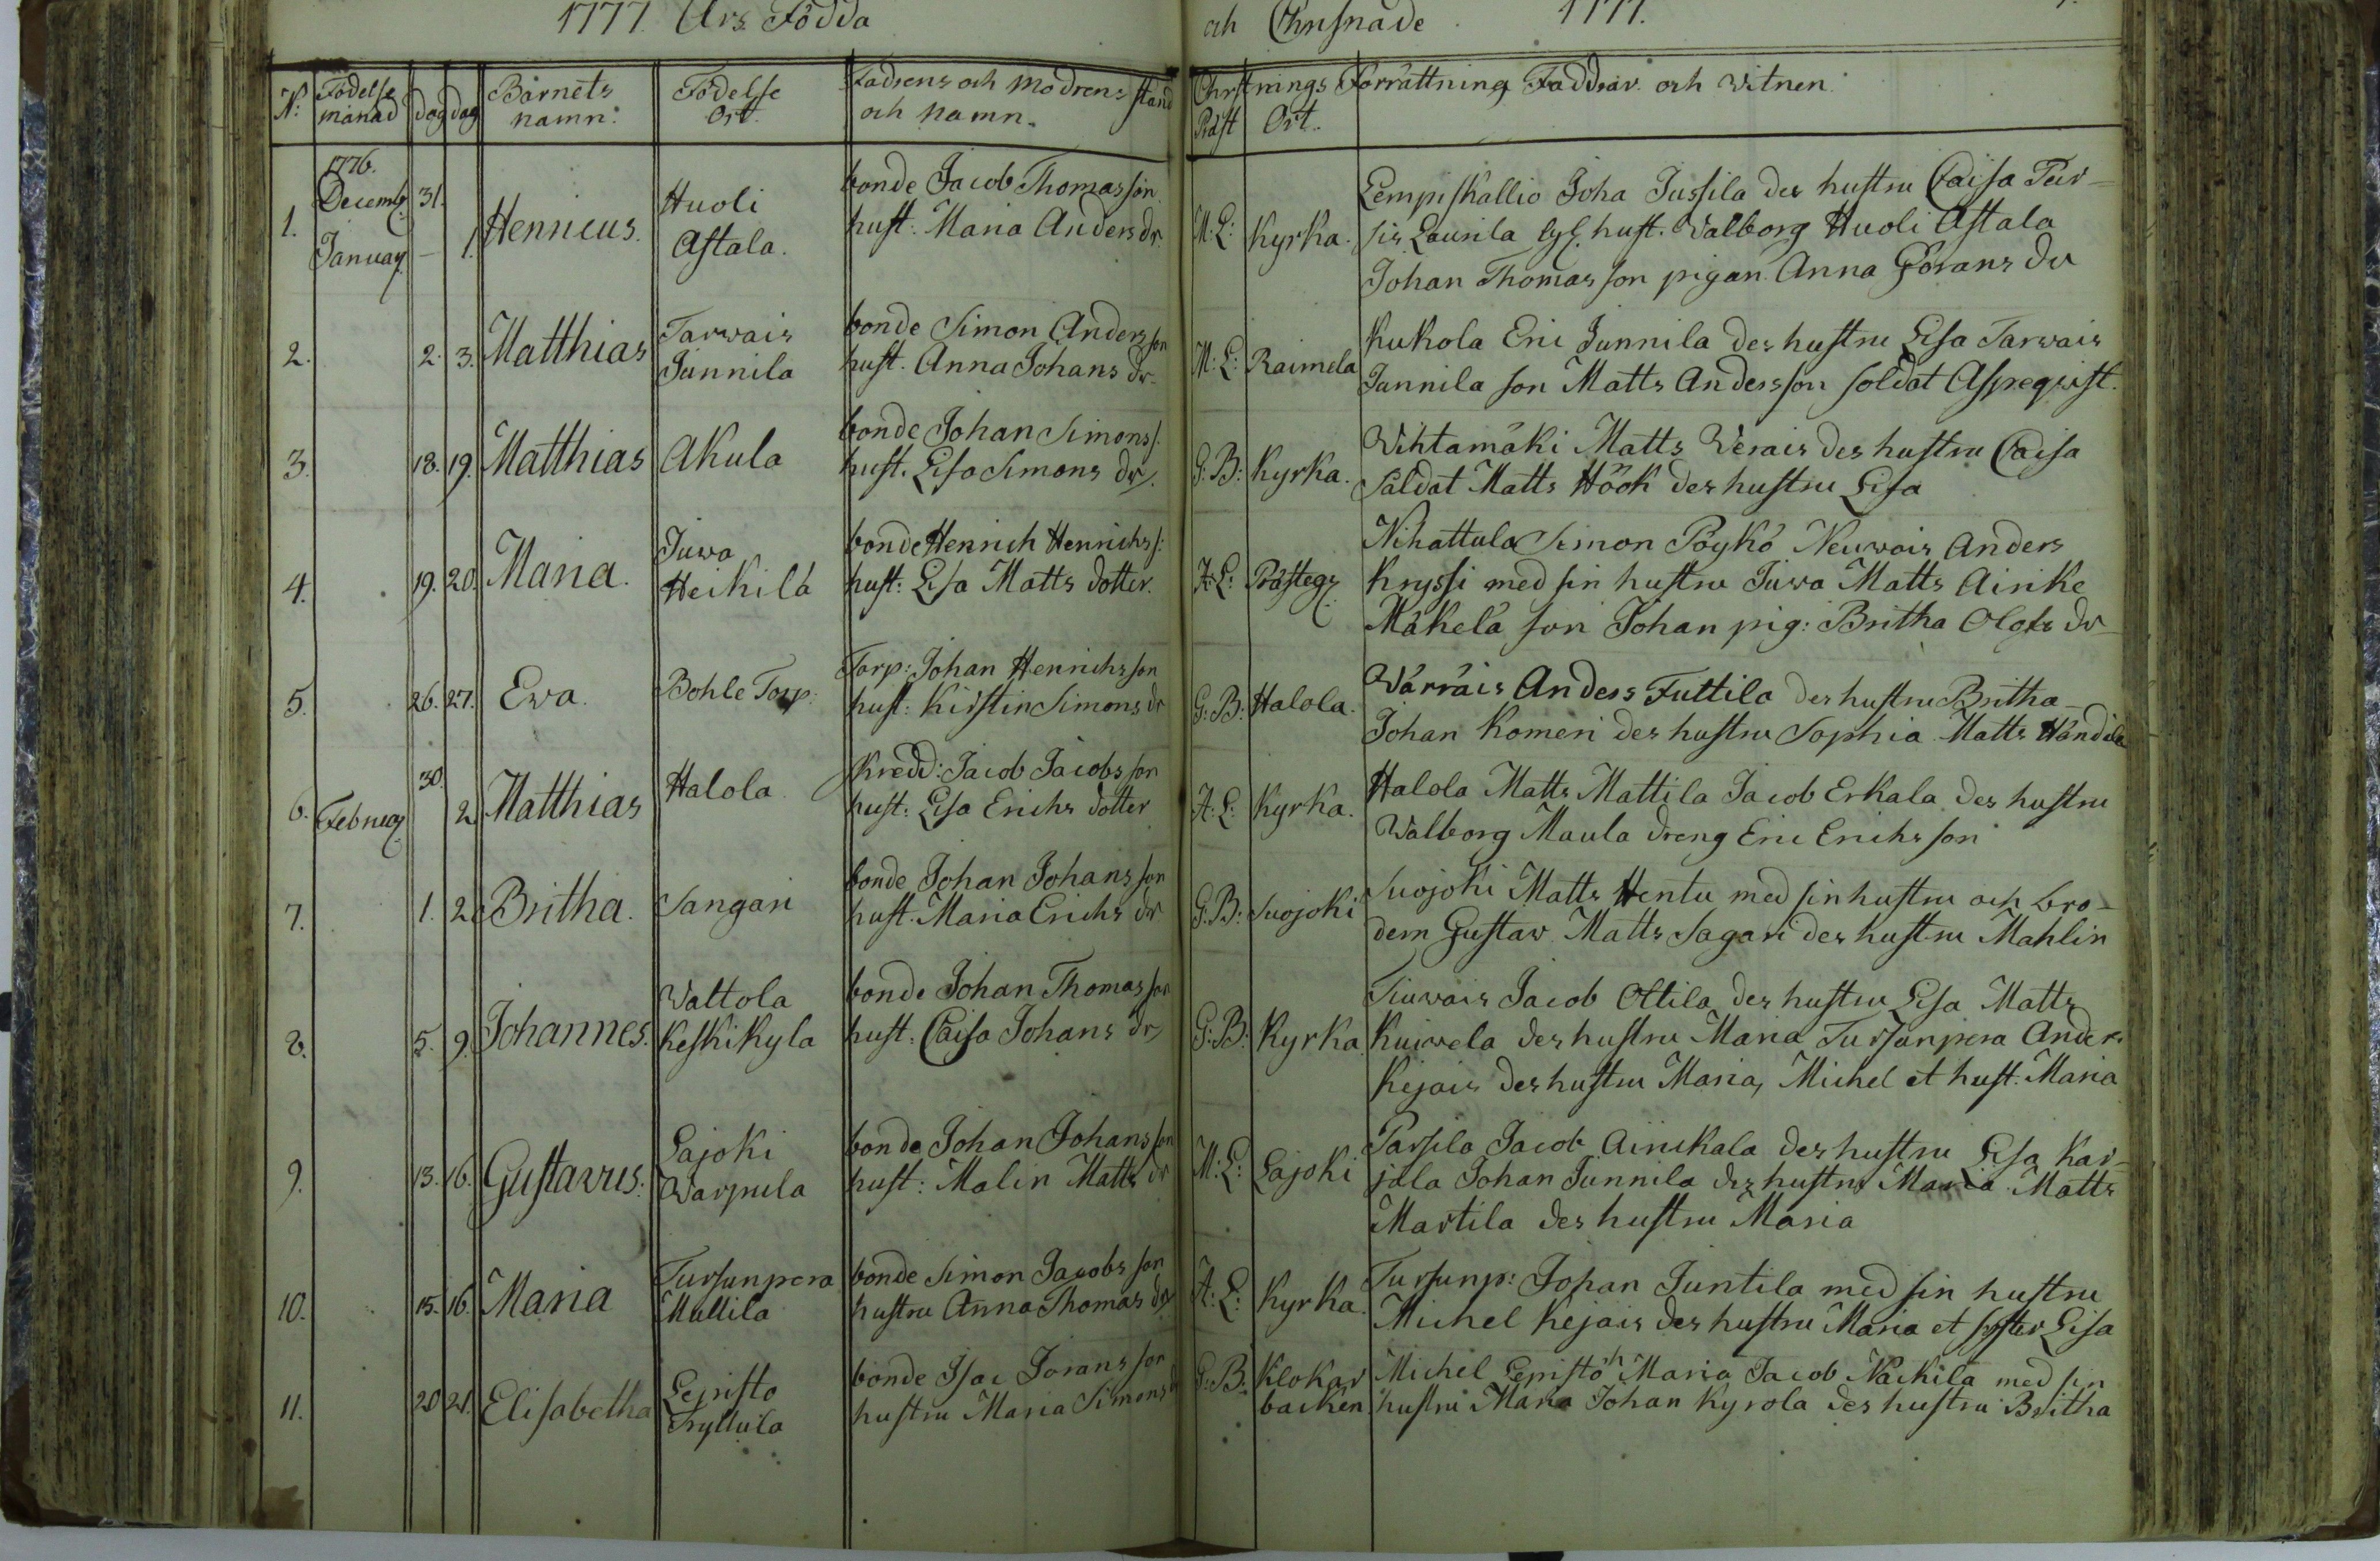 1777 Års Födda
och Christnade 1777.
N: Födelse månad dag dag Barnets namn: Födelse Ort. Fadrens och Modrens stånd och namn.
Christnings Förrättning Faddrar och Witnen
Präst Ort.
1776.
1. Decemb: 31. January — 1. Henricus. Huoli Astala. bonde Jacob Thomasson
hust: Maria Anders dr.
M: L: Kyrka. Lempiskallio Joha Jussila des hustru Caisa Pur-
sis Laurila hust. Walborg Huoli Astala
Johan Thomas son pigan Anna Görans dr
2. 2. 3. Matthias Tarwais Junnila bonde Simon Andersson
hust. Anna Johans dr.
M: L: Raimela Kukola Eric Junnila des hustru Lisa Tarwais
Junnila son Matts Andersson soldat Aspeqwist.
3. 18. 19. Matthias Akula bonde Johan Simons s.
hust. Lisa Simons dr.
G: B: Kyrka. Wihtamäki Matts Werais des hustru Caisa
Saldat Matts Höök des hustru Lisa
4. 19. 20. Maria. Juwa Heikilä bonde Henrich Henrichs s:
hust: Lisa Matts dotter.
A: L: Prästeg: Nihattula Simon Pöykö Neuwais Anders
Kryssi med sin hustru Juwa Matts Ainike
Mäkelä son Johan pig: Britha Olofs dr
5. 26. 27. Ewa. Bohle Torp. Torp: Johan Henrichsson
hust: Kirstin Simons dr
G: B: Halola. Wärräis Anders Futtila des hustru Britha
Johan Komeri des hustru Sophia Matts Händilä
6. 30. February 2 Matthias Halola. Kredd: Jacob Jacobsson
hust: Lisa Erichs dotter
A: L: Kyrka. Halola Matts Mattila Jacob Erkala des hustru
Walborg Maula dreng Eric Erichsson
7. 1. 2. Britha. Sangari bonde Johan Johansson
hust. Maria Erichs dr
G: B: Suojoki Suojoki Matts Hentu med sin hustru och bro-
dern Gustav Matts Sagari des hustru Mahlin
8. 5. 9. Johannes. Wattola Keskikyla bonde Johan Thomasson
hust. Caisa Johans dr
G: B: Kyrka. Tiuwais Jacob Ottila des hustru Lisa Matts
Kuiwela des hustru Maria Tursunpera Anders
Kejais des hustru Maria, Michel et hust. Maria
9. 13. 16. Gustavus: Lajoki Warpula bonde Johan Johansson
hust: Malin Matts dr
M: L: Lajoki Parsila Jacob Ainikala des hustru Lisa Kar-
jala Johan Junnila des hustru Maria Matts
Martila des hustru Maria
10. 15. 16. Maria Tursunpera Mattila bonde Simon Jacobsson
hustru Anna Thomas dr
A: L: Kyrka. Tursunp: Johan Juntila med sin hustru
Michel Kejais des hustru Maria et syster Lisa
11. 20 21. Elisabetha Lepisto Tryttula bonde Isac Joransson
hustru Maria Simons dr
G: B: Klokar backen Michel Lepistö h Maria Jacob Näckilä med sin
hustru Maria Johan Kyrola des hustru Britha